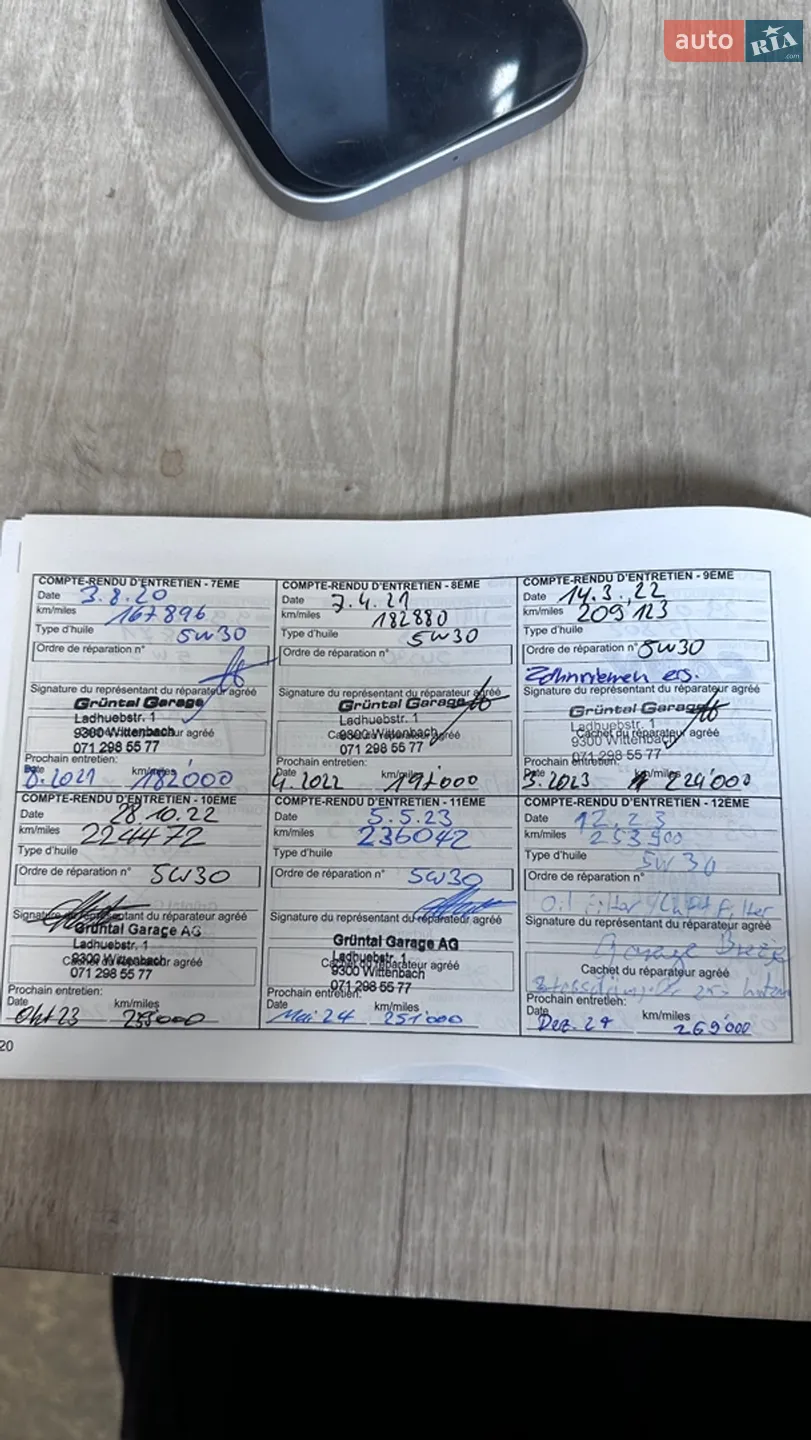 auto RIA .com
COMPTE-RENDU D'ENTRETIEN - 7ÈME
Date 3.8.20
km/miles 167896
Type d'huile 5W30
Ordre de réparation n°
Signature du représentant du réparateur agréé
Grüntal Garage
Ladhuebstr. 1
9300 Wittenbach
071 298 55 77
Prochain entretien:
Date 8.2021 km/miles 182'000
COMPTE-RENDU D'ENTRETIEN - 8ÈME
Date 7.4.21
km/miles 182880
Type d'huile 5W30
Ordre de réparation n°
Signature du représentant du réparateur agréé
Grüntal Garage
Ladhuebstr. 1
9300 Wittenbach
071 298 55 77
Prochain entretien:
Date 4.2022 km/miles 197'000
COMPTE-RENDU D'ENTRETIEN - 9ÈME
Date 14.3.22
km/miles 209123
Type d'huile
Ordre de réparation n° 5W30
Zahnriemen ers.
Signature du représentant du réparateur agréé
Grüntal Garage
Ladhuebstr. 1
Cachet du réparateur agréé
9300 Wittenbach
071 298 55 77
Prochain entretien:
Date 3.2023 km/miles 224'000
COMPTE-RENDU D'ENTRETIEN - 10ÈME
Date 28.10.22
km/miles 224472
Type d'huile
Ordre de réparation n° 5W30
Signature du représentant du réparateur agréé
Grüntal Garage AG
Ladhuebstr. 1
9300 Wittenbach
071 298 55 77
Prochain entretien:
Date Okt 23 km/miles 239'000
COMPTE-RENDU D'ENTRETIEN - 11ÈME
Date 5.5.23
km/miles 236042
Type d'huile
Ordre de réparation n° 5W30
Signature du représentant du réparateur agréé
Grüntal Garage AG
Ladhuebstr. 1
9300 Wittenbach
071 298 55 77
Prochain entretien:
Date Mai 24 km/miles 251'000
COMPTE-RENDU D'ENTRETIEN - 12ÈME
Date 12.23
km/miles 253900
Type d'huile 5W30
Ordre de réparation n°
Oil Filter Luft Filter
Signature du représentant du réparateur agréé
Garage
Cachet du réparateur agréé
Prochain entretien:
Date Dez. 24 km/miles 269'000
20